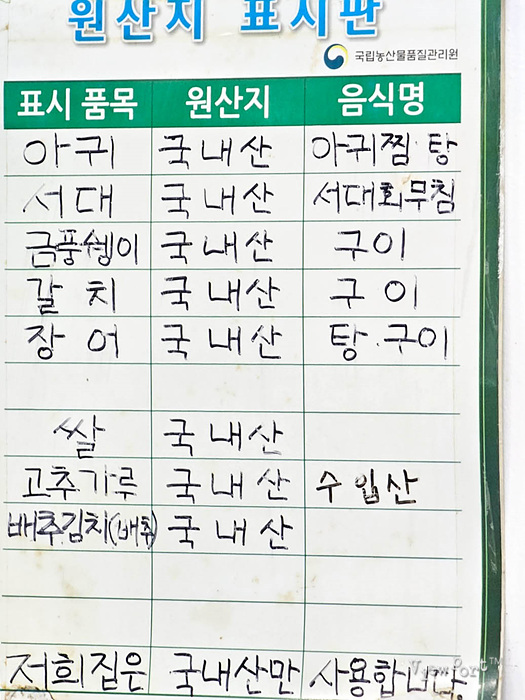 원산지 표시판
국립농산물품질관리원
표시 품목 원산지 음식명
아귀 국내산 아귀찜 탕
서대 국내산 서대회무침
금풍쉥이 국내산 구이
갈치 국내산 구이
장어 국내산 탕·구이
쌀 국내산
고추가루 국내산 수입산
배추김치(배추) 국내산
저희집은 국내산만 사용합니다
ViewFort™